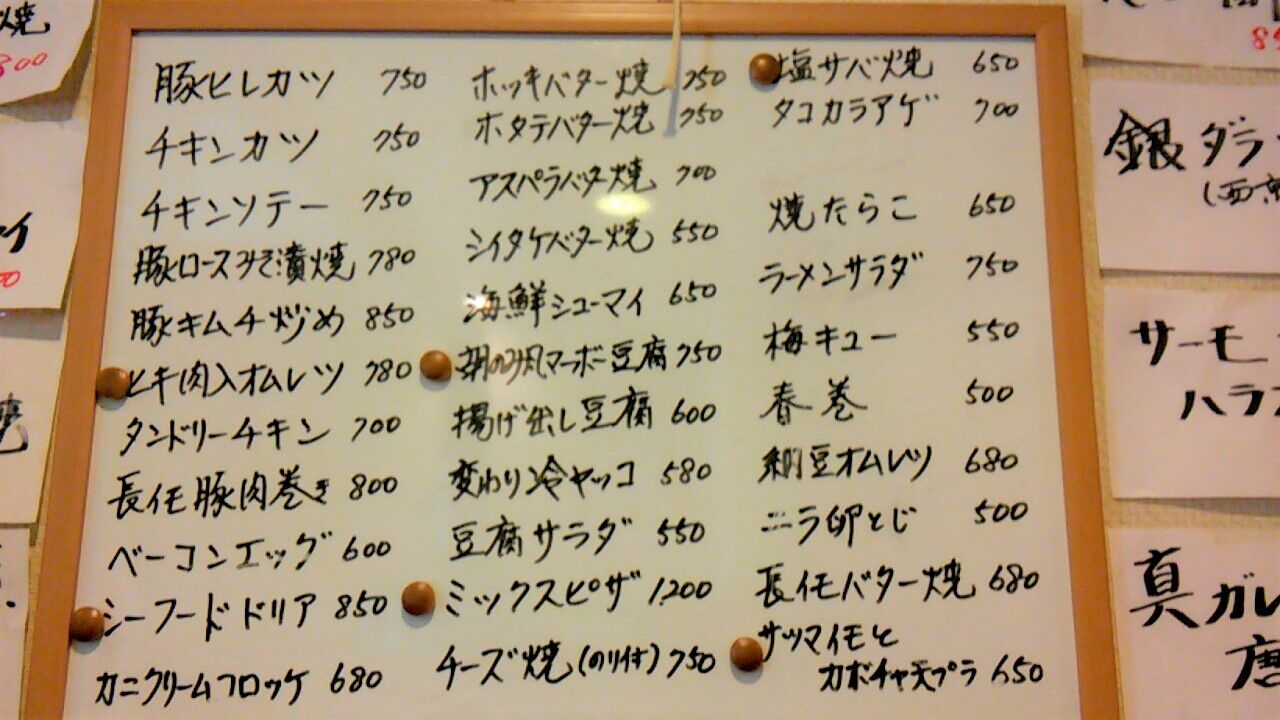 豚ヒレカツ 750
チキンカツ 750
チキンソテー 750
豚ロースみそ漬焼 780
豚キムチ炒め 850
ヒキ肉入オムレツ 780
タンドリーチキン 700
長イモ豚肉巻き 800
ベーコンエッグ 600
シーフードドリア 850
カニクリームコロッケ 680
ホッキバター焼 750
ホタテバター焼 750
アスペラバター焼 700
シイタケバター焼 550
海鮮シューマイ 650
マーボー豆腐 750
揚げ出し豆腐 600
変わり冷ヤッコ 580
豆腐サラダ 550
ミックスピザ 1,200
チーズ焼(のり付) 750
塩サバ焼 650
タコカラアゲ 700
焼たらこ 650
ラーメンサラダ 750
梅キュー 550
春巻 500
納豆オムレツ 680
ニラ卵とじ 500
長イモバター焼 680
サツマイモと
カボチャ天プラ 650
焼
800
イ
銀ダラ
サーモ
ハラ
真ガレ
唐